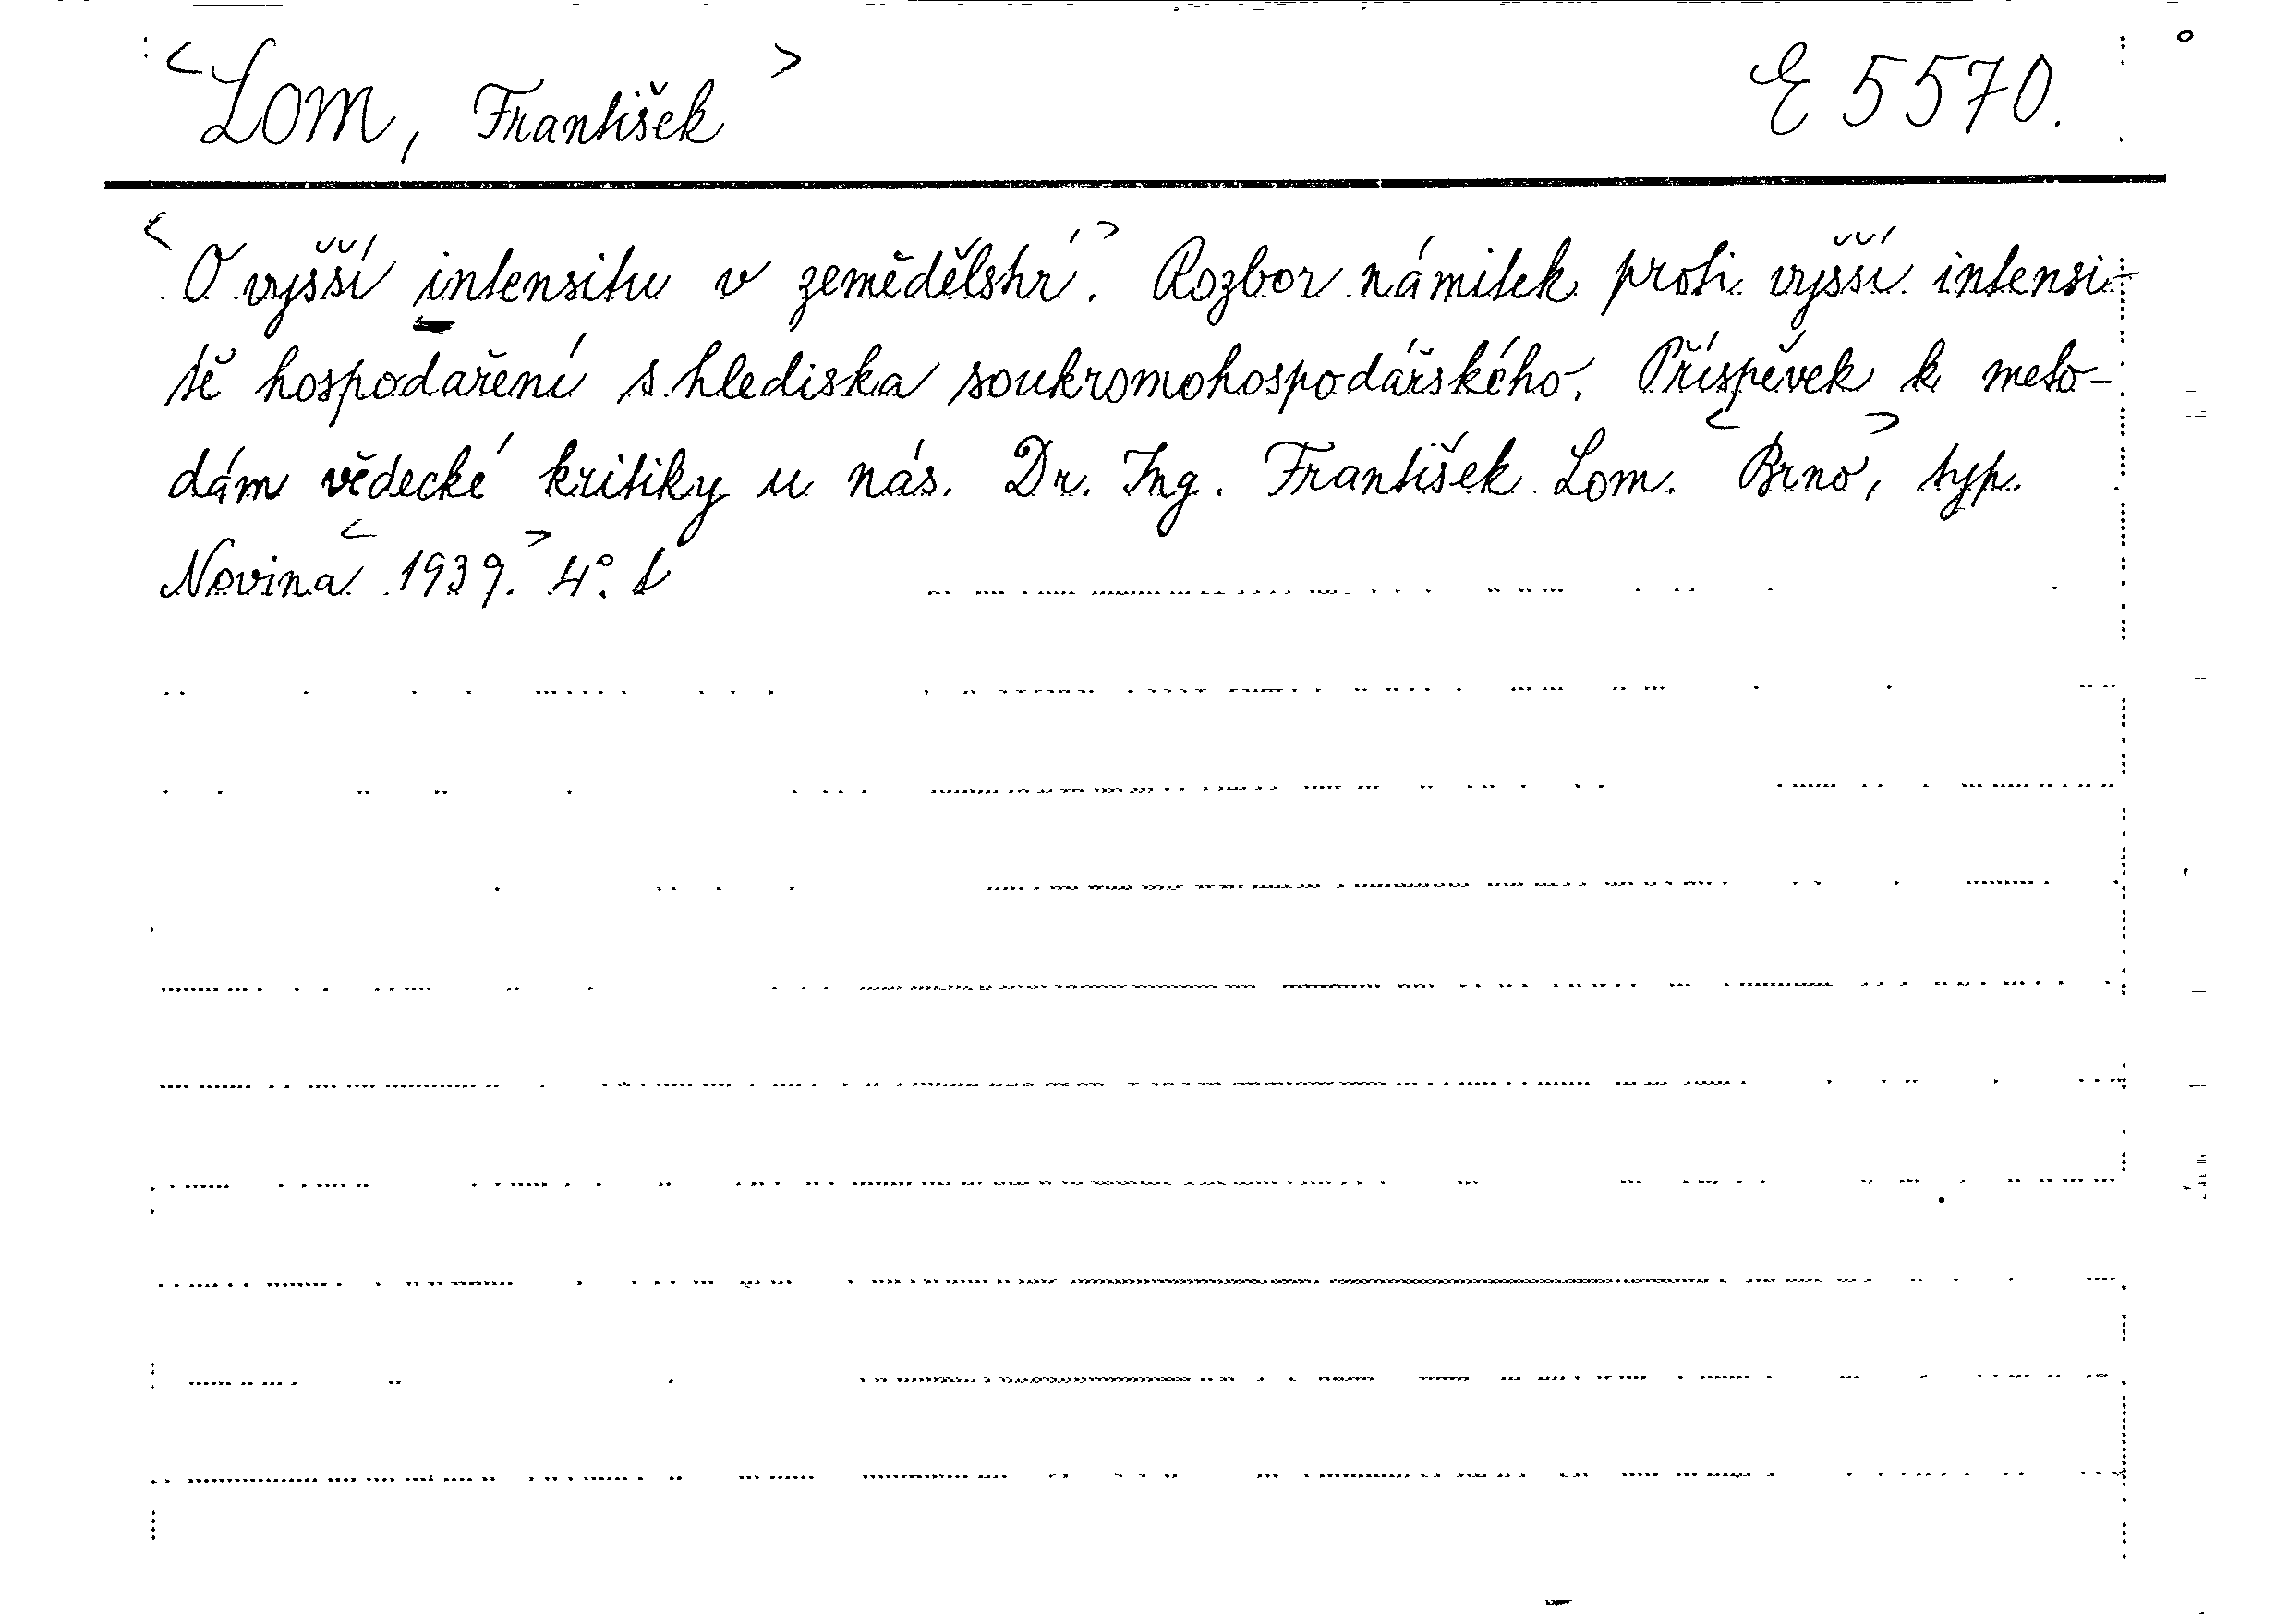 <Lom, František> E 5570.
<O vyšší intensitu v zemědělství.> Rozbor námitek proti vyšší intensi-
tě hospodaření s hlediska soukromohospodářského. Příspěvek k meto-
dám vědecké kritiky u nás. Dr. Ing. František Lom. <Brno>, typ.
Novina <1939.> 4°.